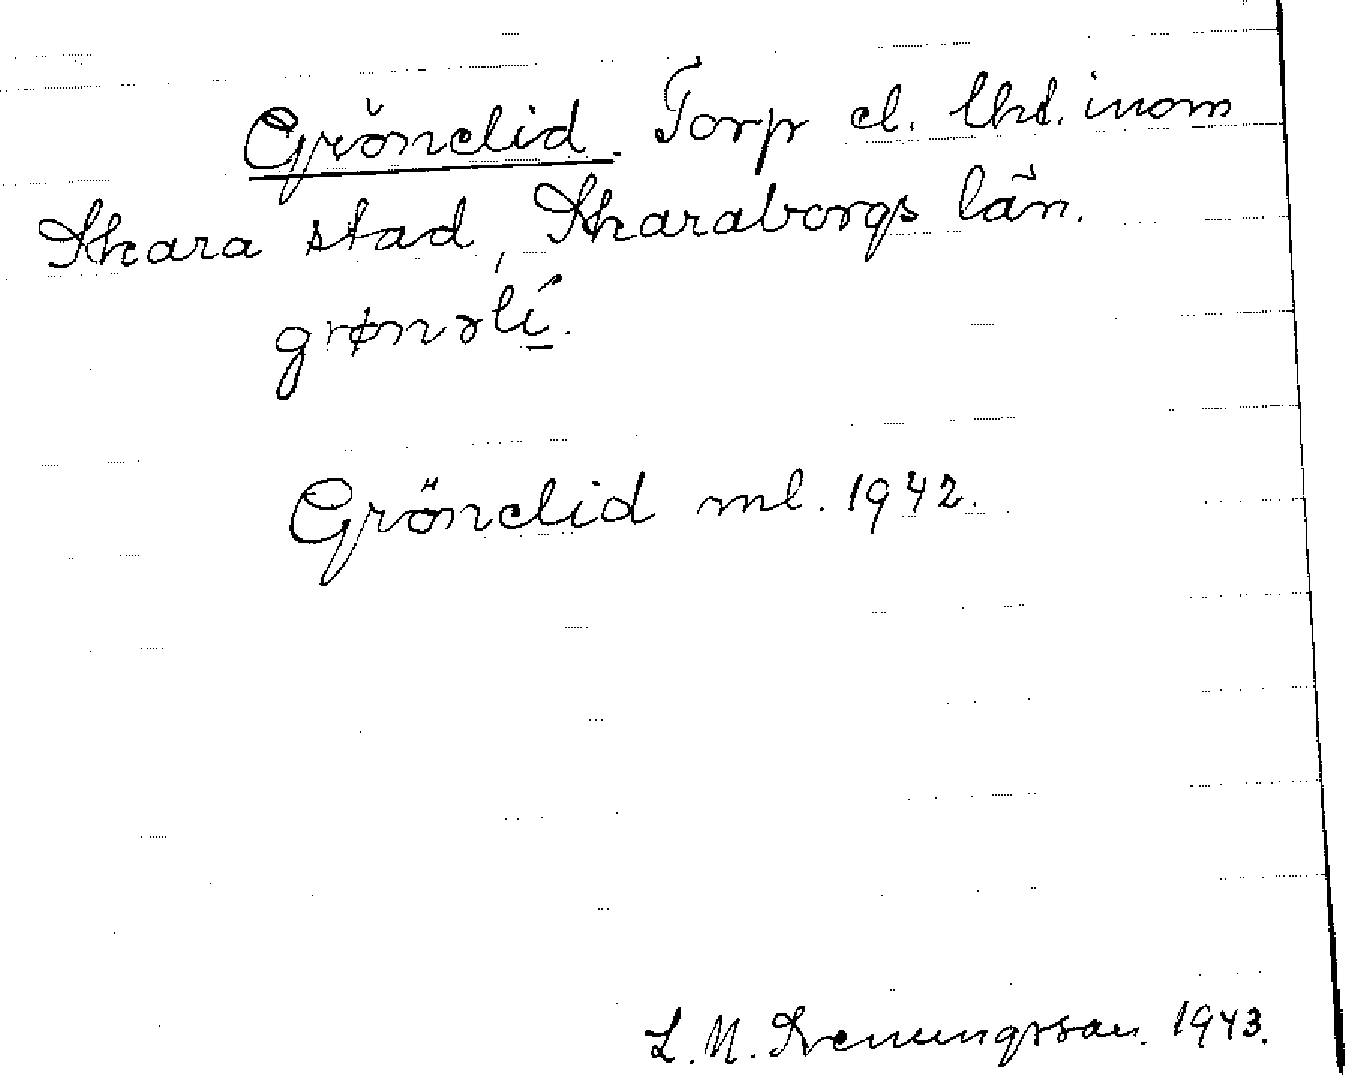 Grönelid. Torp el. lht. inom
Skara stad, Skaraborgs län.
grønəlí.
Grönelid ml. 1942.
L. M. Svenungsson. 1943.